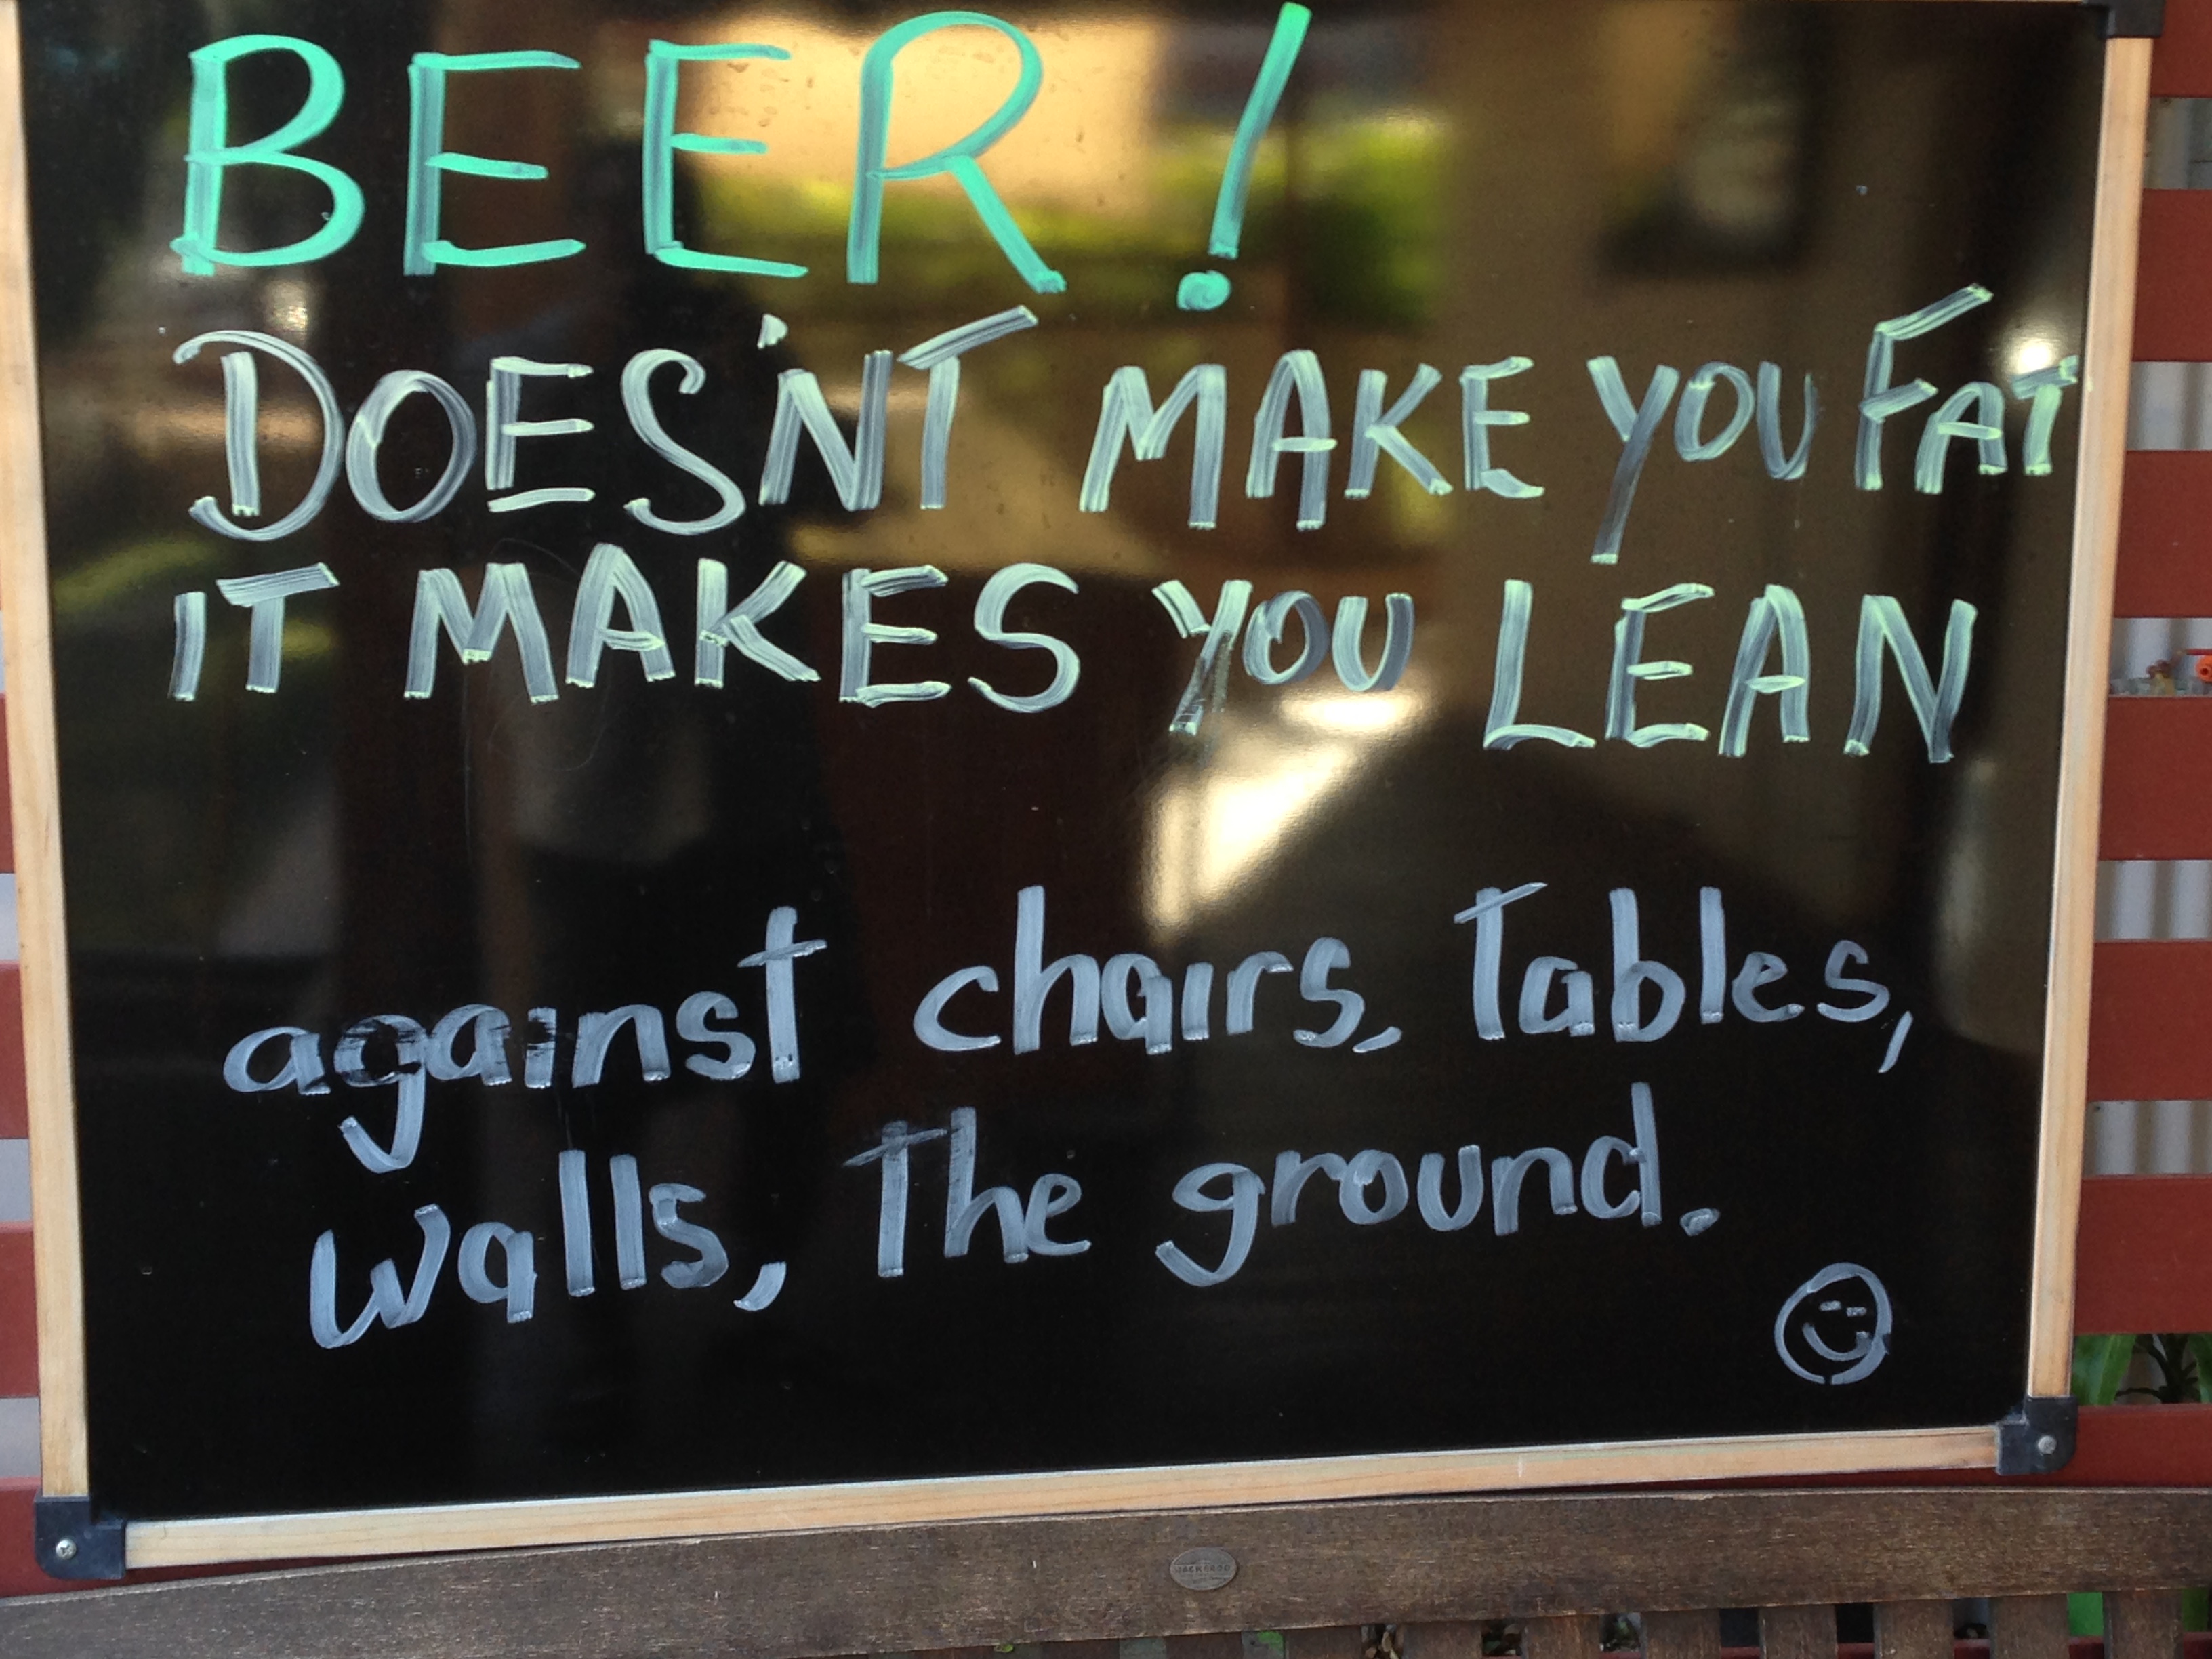 BEER!
DOES'NT MAKE YOU FAT
IT MAKES YOU LEAN
against chairs, Tables,
walls, The ground.